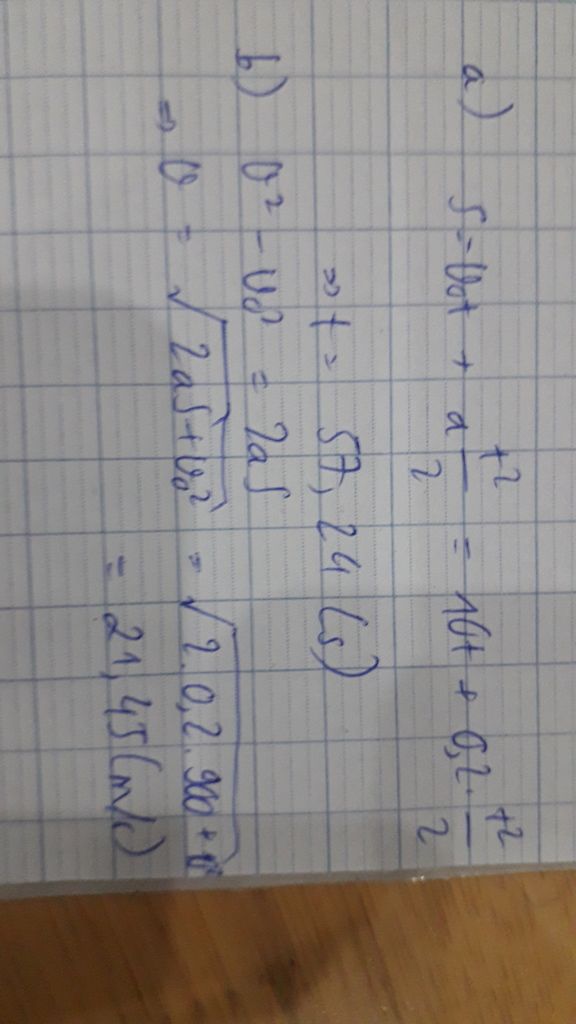 a) S = v₀t + a t²/2 = 10t + 0,2. t²/2
⇒ t = 57,24 (s)
b) v² - v₀² = 2aS
⇒ v = √(2aS + v₀²) = √(2.0,2.900 +
= 21,45 (m/s)